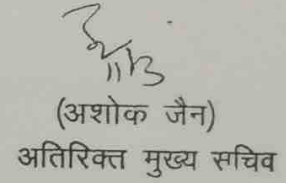 (अशोक जैन)
अतिरिक्त मुख्य सचिव